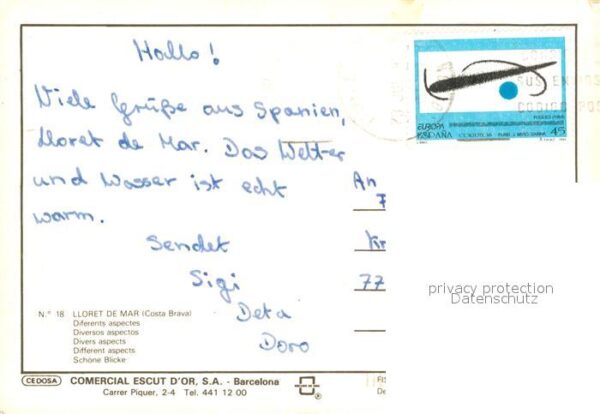 Hallo!
Viele Grüße aus Spanien,
Lloret de Mar. Das Wetter
und Wasser ist echt
warm.
Sendet
Sigi
Deta
Doro
An
7
77
privacy protection
Datenschutz
EUROPA
ESPAÑA
45
N.° 18 LLORET DE MAR (Costa Brava)
Diferents aspectes
Diversos aspectos
Divers aspects
Different aspects
Schöne Blicke
CEDOSA COMERCIAL ESCUT D'OR, S.A. - Barcelona
Carrer Piquer, 2-4 Tel. 441 12 00